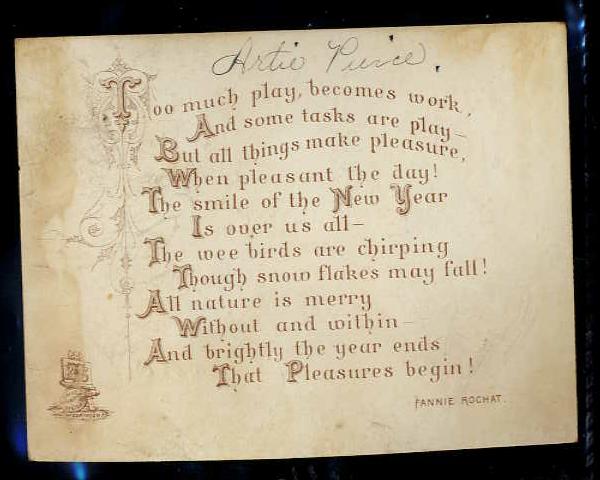 Artie Pierce.
Too much play, becomes work,
And some tasks are play—
But all things make pleasure,
When pleasant the day!
The smile of the New Year
Is over us all—
The wee birds are chirping
Though snow flakes may fall!
All nature is merry
Without and within—
And brightly the year ends
That Pleasures begin!
FANNIE ROCHAT.